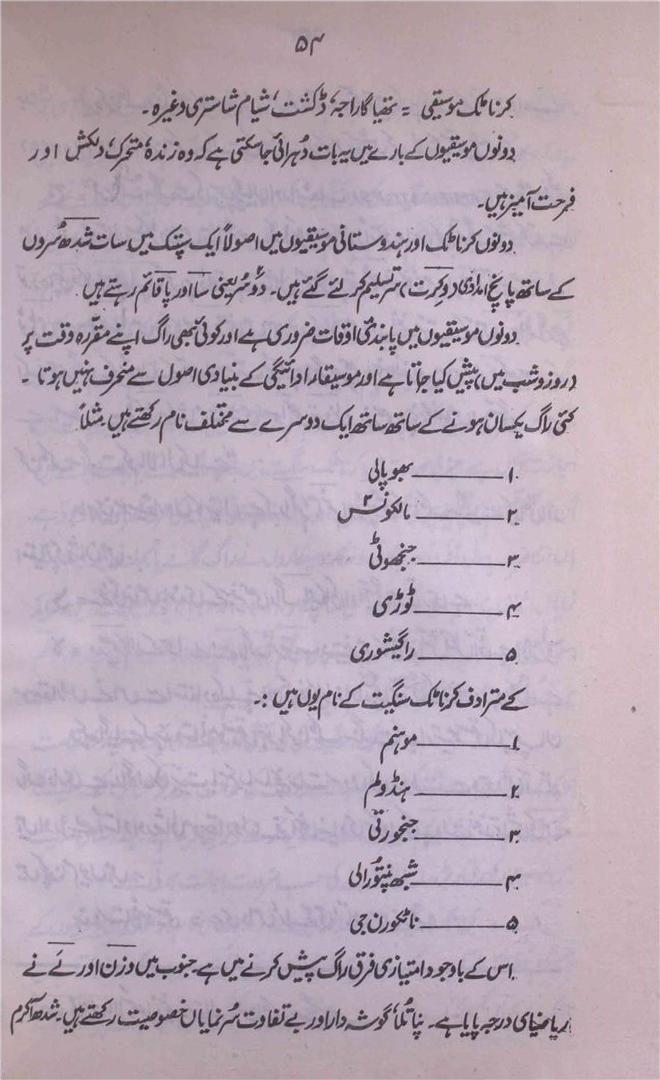 ۵۴
کرناٹک موسیقی = تھیاگاراجہ، ڈکشت، شیام شاستری وغیرہ۔
دونوں موسیقیوں کے بارے میں یہ بات دُہرائی جا سکتی ہے کہ وہ زندہ، متحرک، دلکش اور
فرحت آمیز ہیں۔
دونوں کرناٹک اور ہندوستانی موسیقیوں میں اصولاً ایک سپتک میں سات شدھ سُروں
کے ساتھ پانچ امدادی (وکرت) سُر تسلیم کر لئے گئے ہیں۔ دو سُر یعنی سا اور پا قائم رہتے ہیں
دونوں موسیقیوں میں پابندیٔ اوقات ضروری ہے اور کوئی بھی راگ اپنے مقررہ وقت پر
(روز و شب میں) پیش کیا جاتا ہے اور موسیقار ادائیگی کے بنیادی اصول سے منحرف نہیں ہوتا۔
کئی راگ یکساں ہونے کے ساتھ ساتھ ایک دوسرے سے مختلف نام رکھتے ہیں۔ مثلاً
۱۔ ــــــــ بھوپالی
۲۔ ــــــــ مالکونس ۲
۳۔ ــــــــ جنجھوٹی
۴۔ ــــــــ ٹوڑی
۵۔ ــــــــ راگیشوری
کے مترادف کرناٹک سنگیت کے نام یوں ہیں:۔
۱۔ ــــــــ موہنم
۲۔ ــــــــ ہنڈولم
۳۔ ــــــــ جنجورتی
۴۔ ــــــــ شبھ پنتورالی
۵۔ ــــــــ ناٹکورن جی
اس کے باوجود امتیازی فرق راگ پیش کرنے میں ہے۔ جنوب میں وزن اور لَے نے
ریاضیای درجہ پایا ہے۔ نپا تُلا، گوشہ دار اور بے تفاوت سُر نمایاں خصوصیت رکھتے ہیں۔ شدھ آکرم